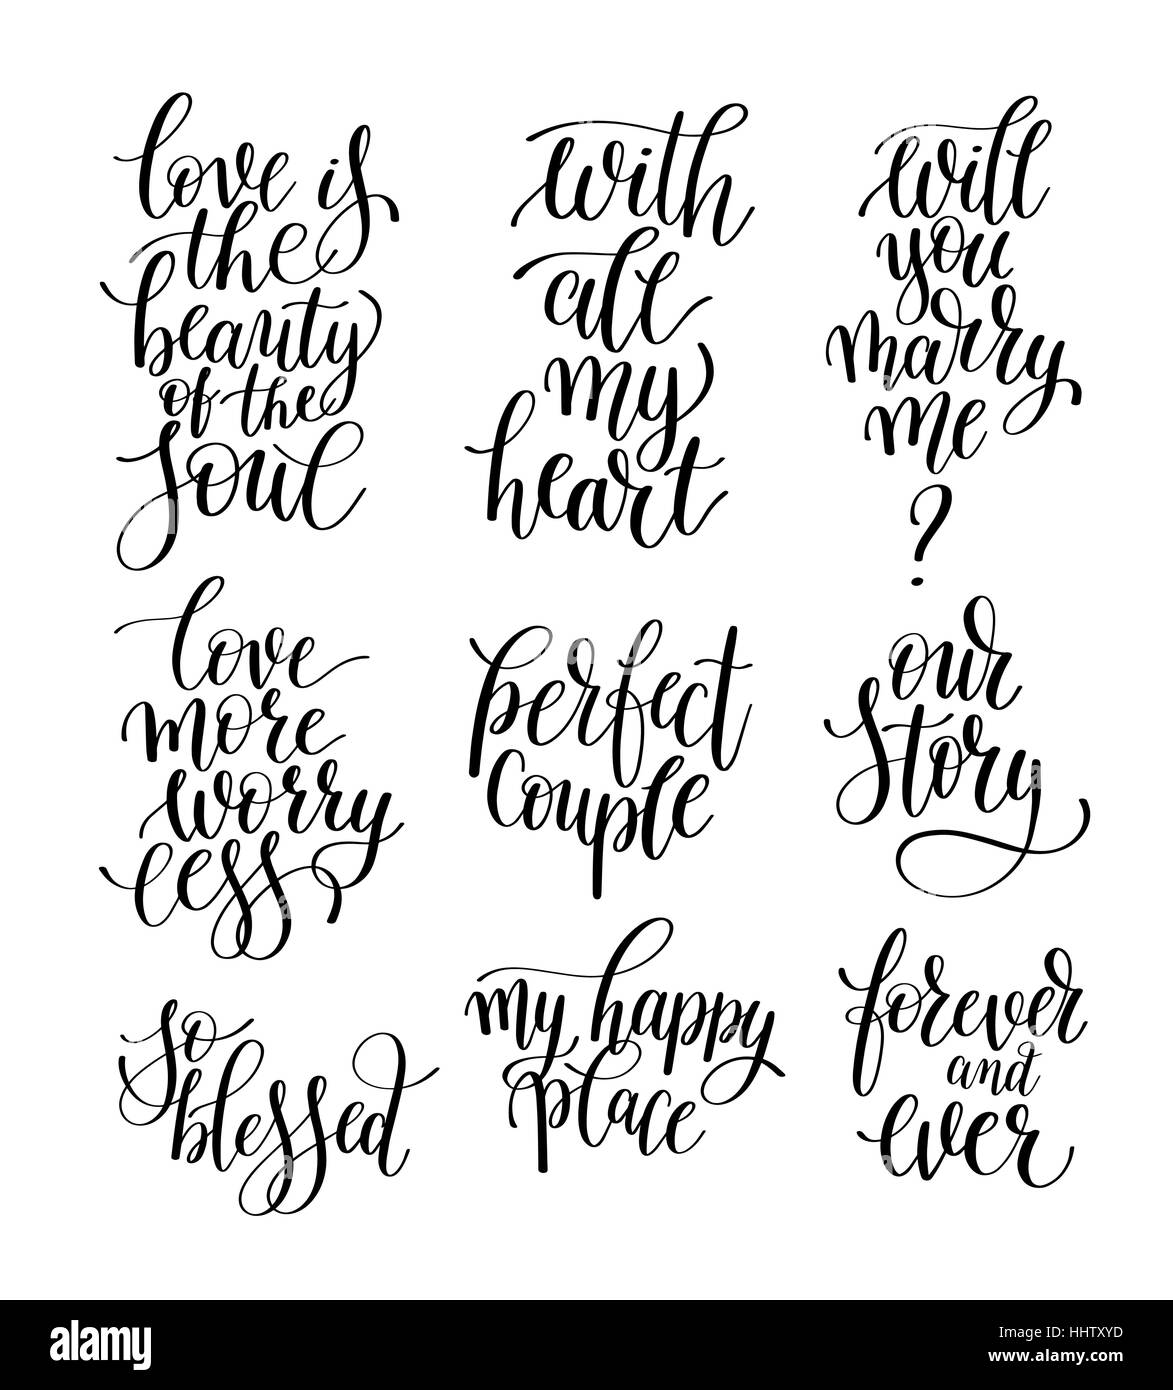 love is
the
beauty
of the
soul
with
all
my
heart
will
you
marry
me
?
love
more
worry
less
perfect
couple
our
story
so
blessed
my happy
place
forever
and
ever
alamy
Image ID: HHTXYD
www.alamy.com